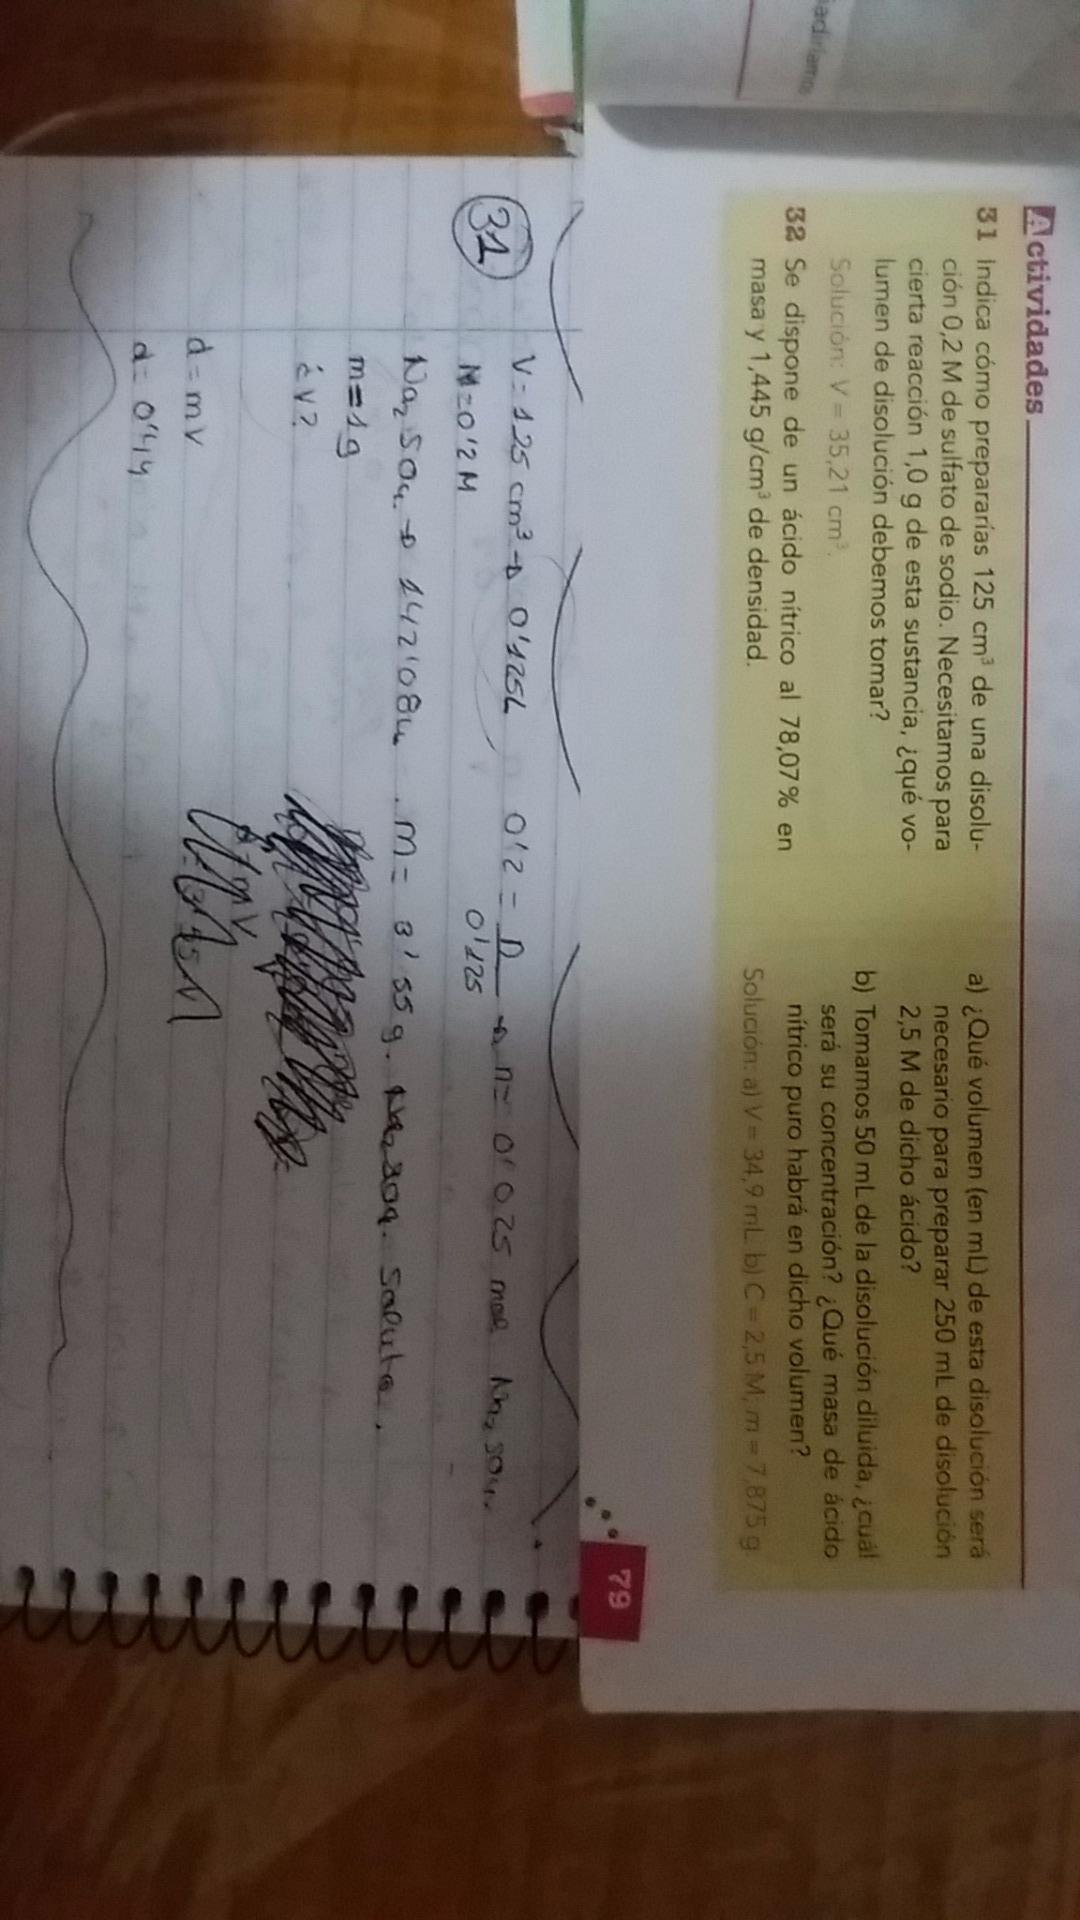 Actividades
31 Indica cómo prepararías 125 cm³ de una disolu-
ción 0,2 M de sulfato de sodio. Necesitamos para
cierta reacción 1,0 g de esta sustancia, ¿qué vo-
lumen de disolución debemos tomar?
Solución: V = 35,21 cm³.
32 Se dispone de un ácido nítrico al 78,07% en
masa y 1,445 g/cm³ de densidad.
a) ¿Qué volumen (en mL) de esta disolución será
necesario para preparar 250 mL de disolución
2,5 M de dicho ácido?
b) Tomamos 50 mL de la disolución diluida, ¿cuál
será su concentración? ¿Qué masa de ácido
nítrico puro habrá en dicho volumen?
Solución: a) V = 34,9 mL. b) C = 2,5 M; m = 7,875 g.
79
31
V = 125 cm³ → 0'125L 0'2 = n / 0'125 → n = 0'025 mol Na₂SO₄.
M = 0'2 M
Na₂SO₄ → 142'08u. m = 3'55 g. Na₂SO₄. Soluto.
m = 1g
¿V?
d = mV
d = 0'44